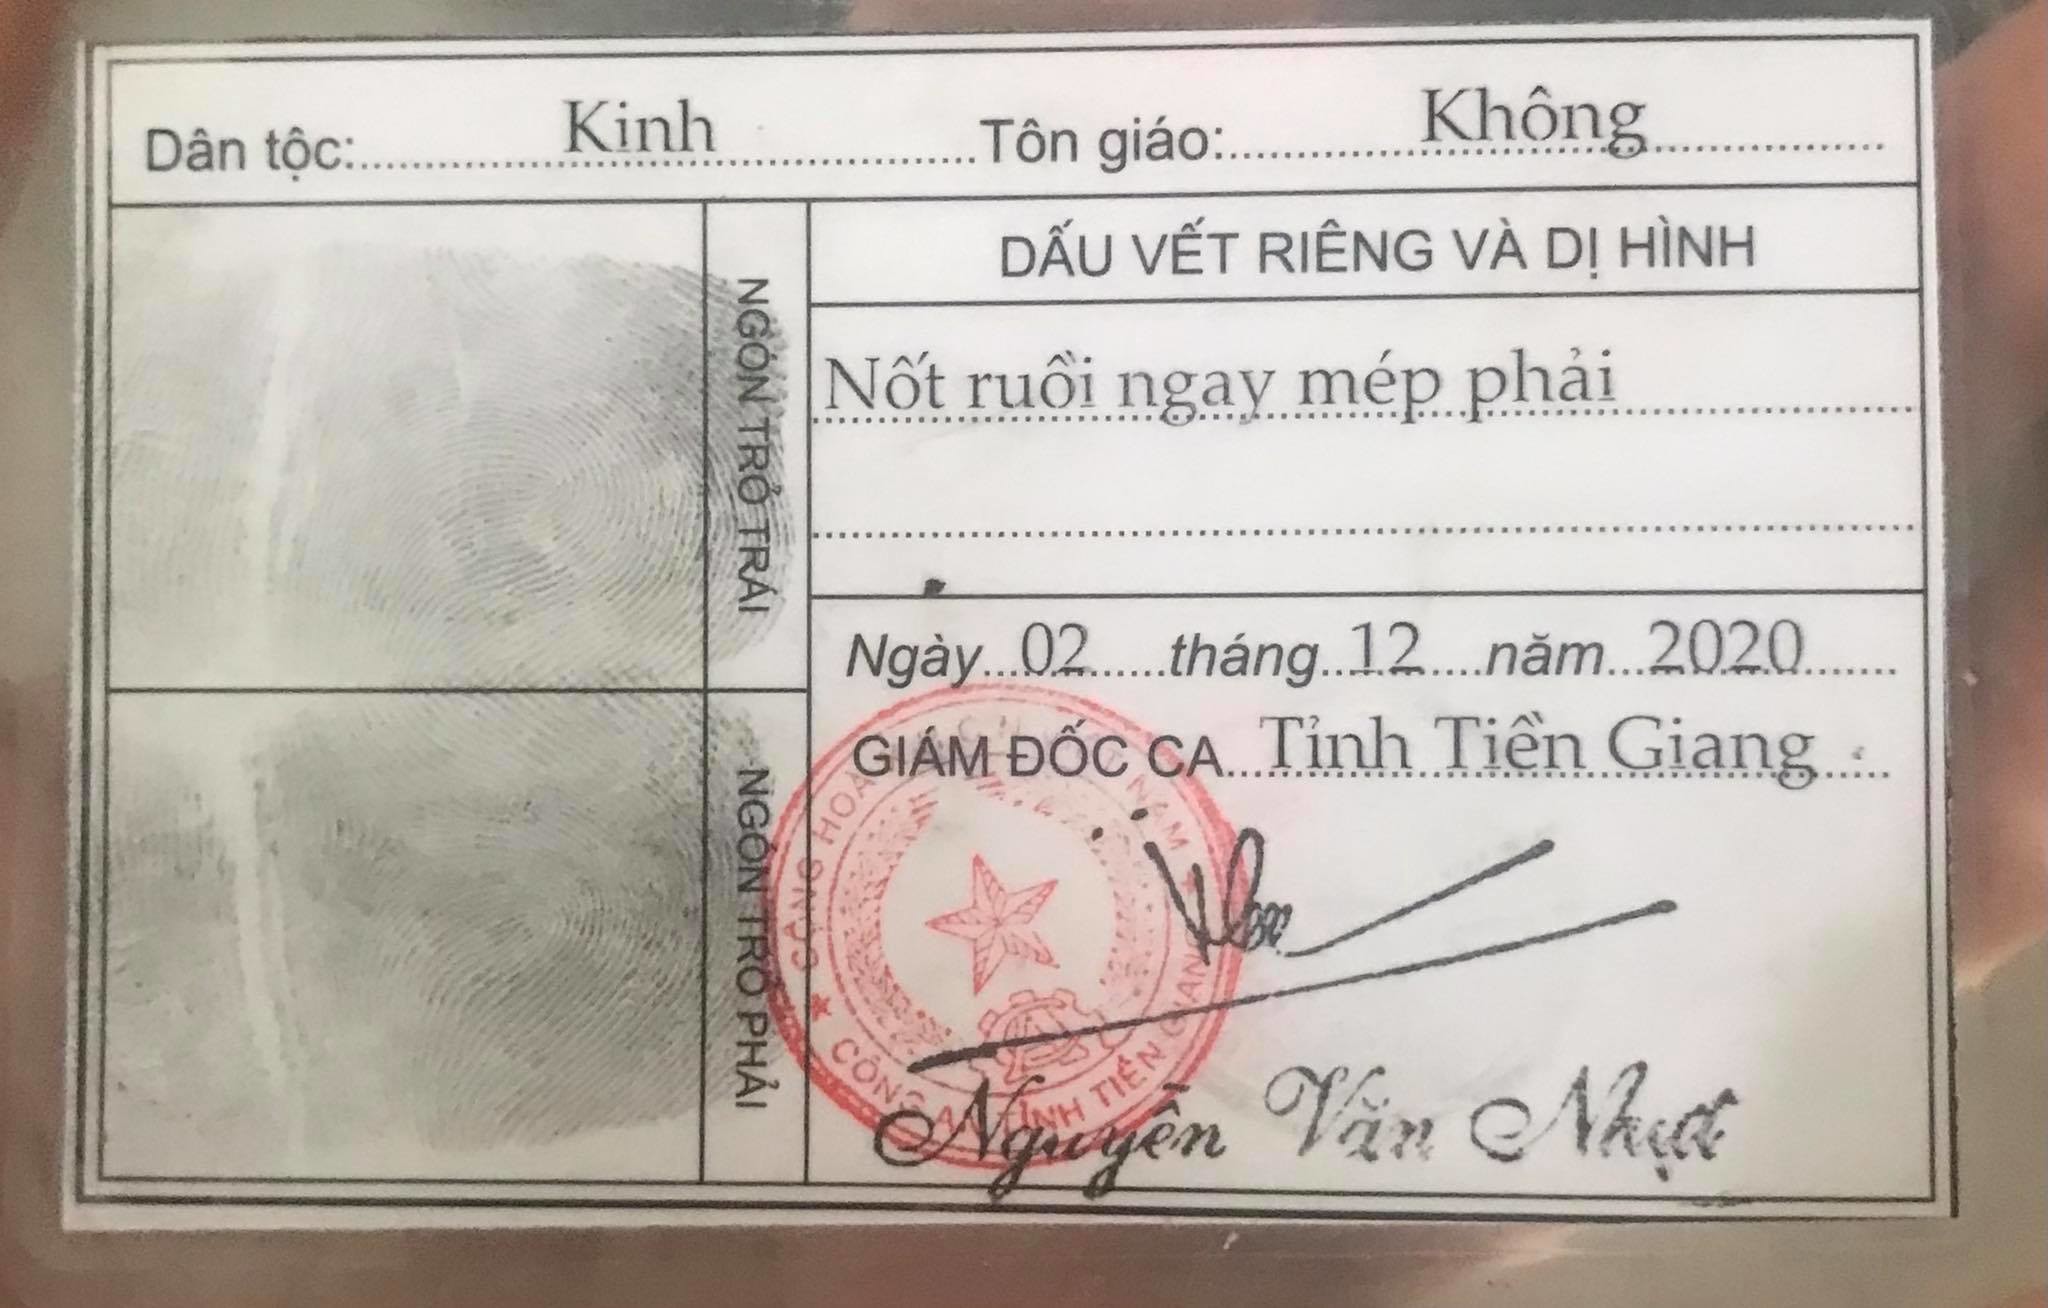 Dân tộc: Kinh Tôn giáo: Không
NGÓN TRỎ TRÁI
NGÓN TRỎ PHẢI
DẤU VẾT RIÊNG VÀ DỊ HÌNH
Nốt ruồi ngay mép phải
Ngày 02 tháng 12 năm 2020
GIÁM ĐỐC CA Tỉnh Tiền Giang
CỘNG HOÀ NAM
CÔNG AN TỈNH TIỀN GIANG
Nguyễn Văn Nhựt